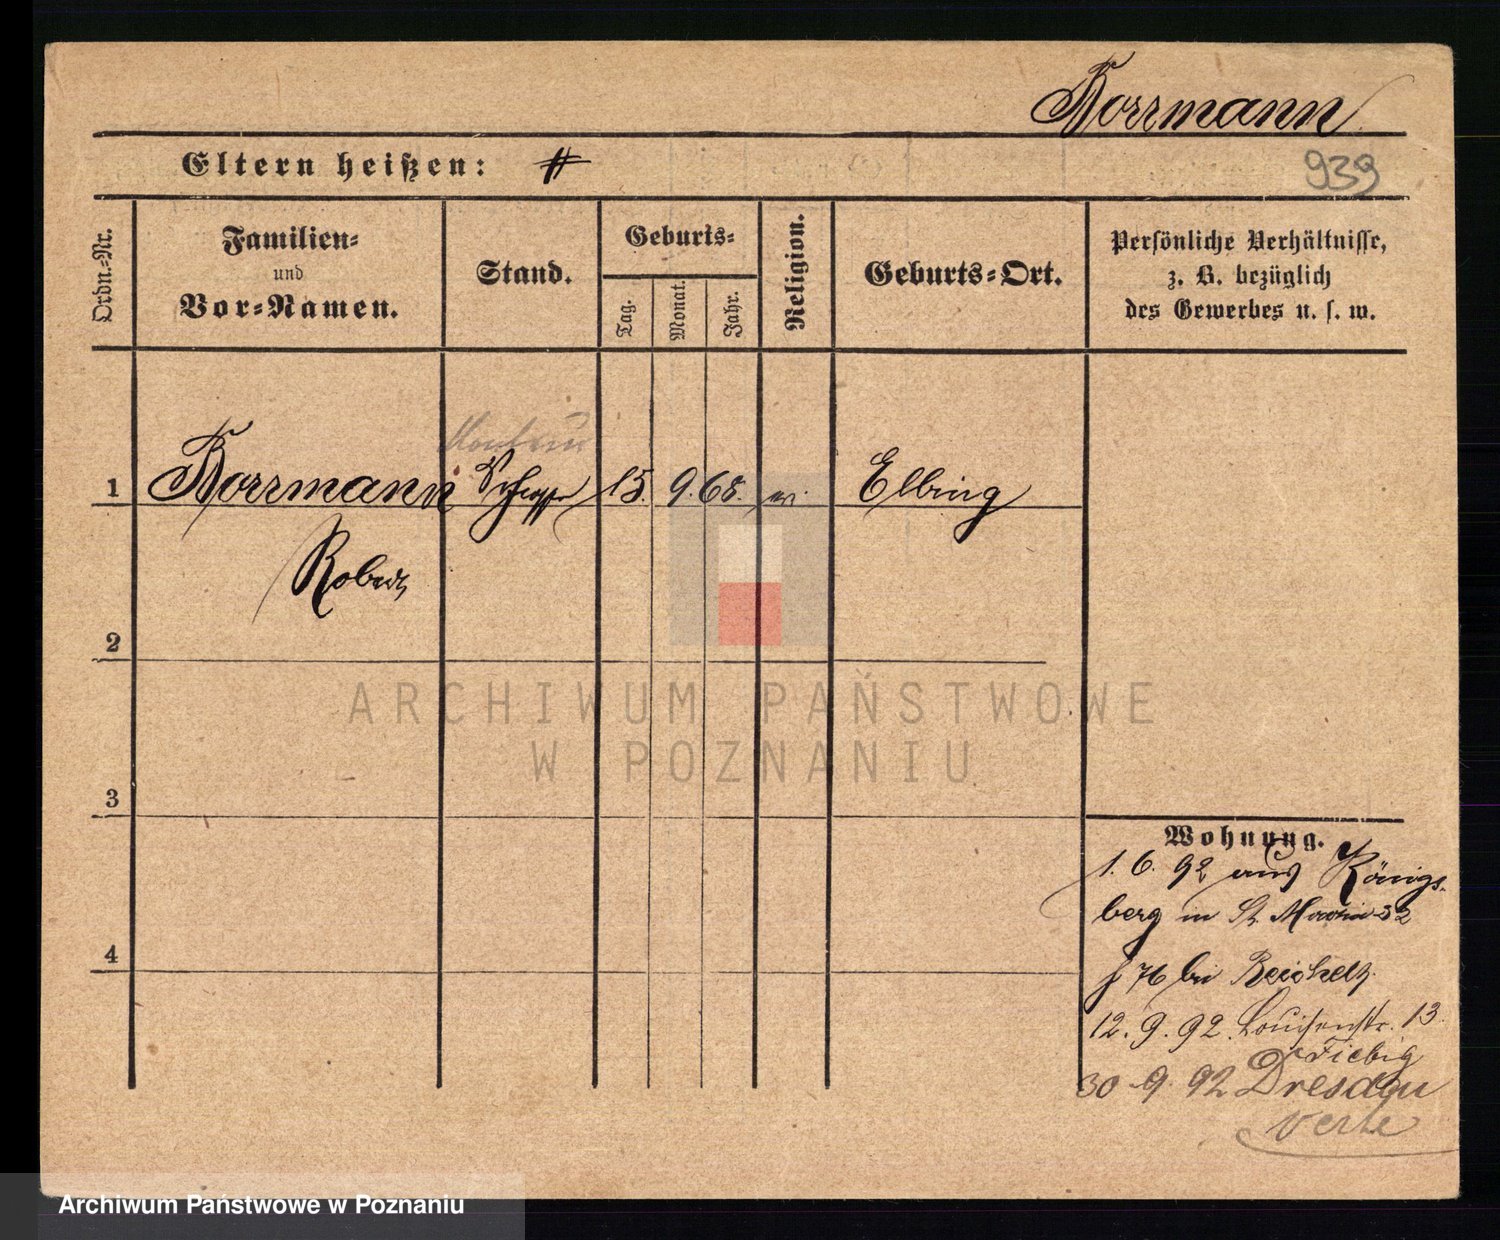 Korrmann
Eltern heißen:
939
Ordn.-Nr.
Familien-
und
Vor-Namen.
Stand.
Geburts-
Tag.
Monat.
Jahr.
Religion.
Geburts-Ort.
Persönliche Verhältnisse,
z. B. bezüglich
des Gewerbes u. s. w.
1 Korrmann 15. 9. 68. Elbing
Robert
2
3
4
Wohnung.
1. 6. 92 aus Königs-
berg in St. Martin 32
bei Reichelt
12. 9. 92. Louisenstr. 13
Fiebig
30 9. 92 Dresden
verte
ARCHIWUM PAŃSTWOWE
W POZNANIU
Archiwum Państwowe w Poznaniu